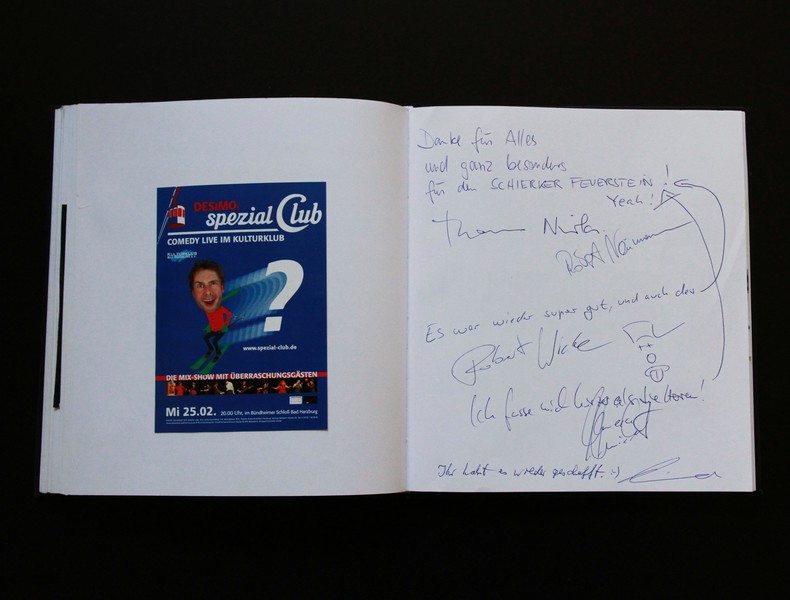 DESiMOs
spezial Club
COMEDY LIVE IM KULTURKLUB
?
www.spezial-club.de
DIE MIX-SHOW MIT ÜBERRASCHUNGSGÄSTEN
Mi 25.02. 20.00 Uhr, im Bündheimer Schloß Bad Harzburg
Danke für Alles
und ganz besonders
für den SCHIERKER FEUERSTEIN!
Yeah!
Thomas
Robert Neumann
Es war wieder super gut, und auch der
Robert Wicke
Ich fasse mich
Ihr habt es wieder geschafft. :-)